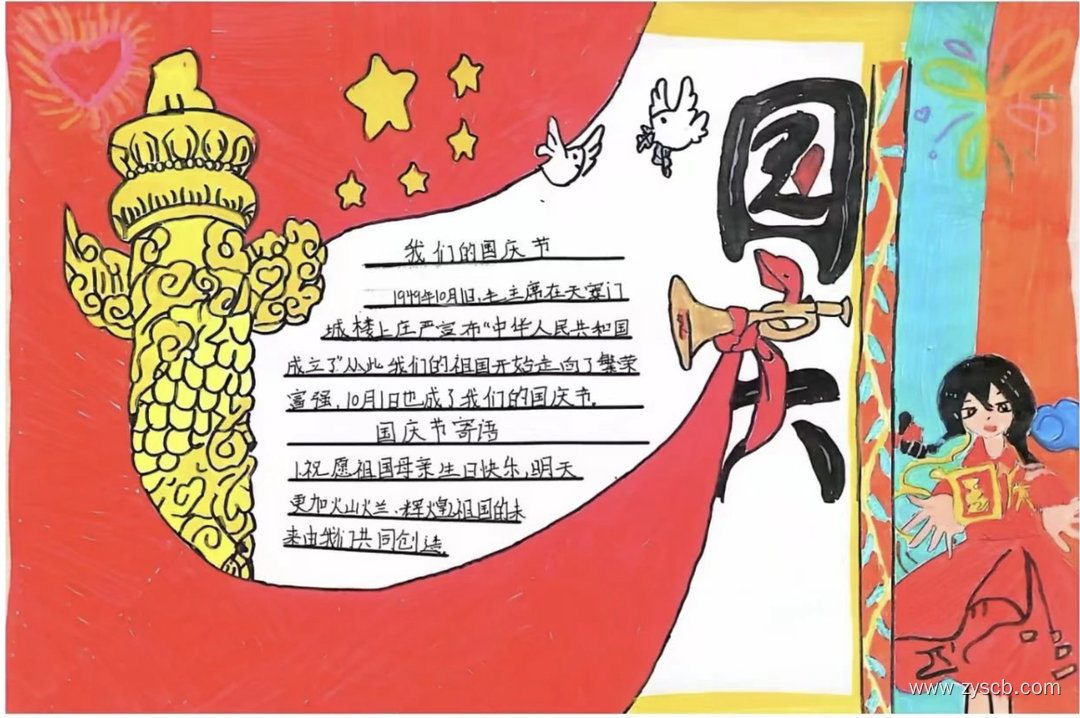 我们的国庆节
1949年10月1日,毛主席在天安门
城楼上庄严宣布“中华人民共和国
成立了”从此我们的祖国开始走向了繁荣
富强,10月1日也成了我们的国庆节。
国庆节寄语
1.祝愿祖国母亲生日快乐,明天
更加火山火兰、辉煌,祖国的未
来由我们共同创造
国庆
国庆
www.zyscb.com